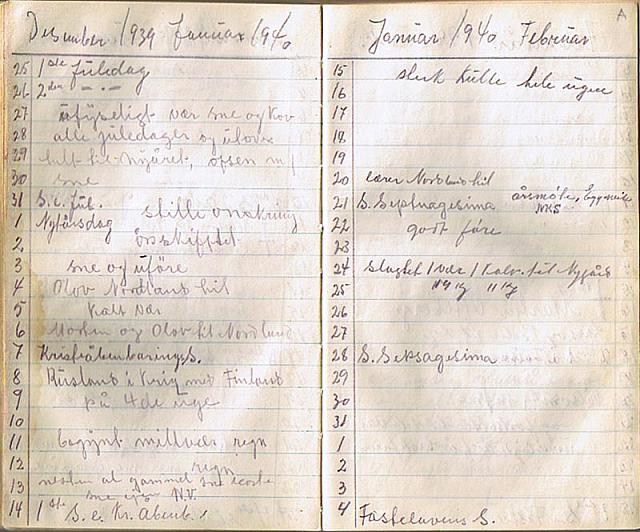 Desember 1939 Januar 1940
25 1ste Juledag
26 2den -"-
27 ufyseligt vær sne og kov
28 alle juledager og utover
29 helt til nyåret,
30 sne
31 S. e. Jul.
1 Nytårsdag stille omskring
2 årsskifftet
3 sne og uføre
4 Olov Nordland hit
5 kalt vær
6 Morten og Olov til Nordland
7 Kristiåbenbarings S.
8 Rusland i krig med Finland
9 på 4de uge
10
11 begynt mildvær regn
12 regn
13 nesten al gammel sne
sne N.V.
14 1ste S. e. Kr. Abenb.
Januar 1940 Februar
A
15 sterk kulde hele ugen
16
17
18
19
20 lærer Nordland hit
21 S. Septuagesima årsmøte,
NKS
22 godt føre
23
24 slagtet 1 vær 1 kalv til Nygård
25
26
27
28 S. Seksagesima
29
30
31
1
2
3
4 Fastelavens S.